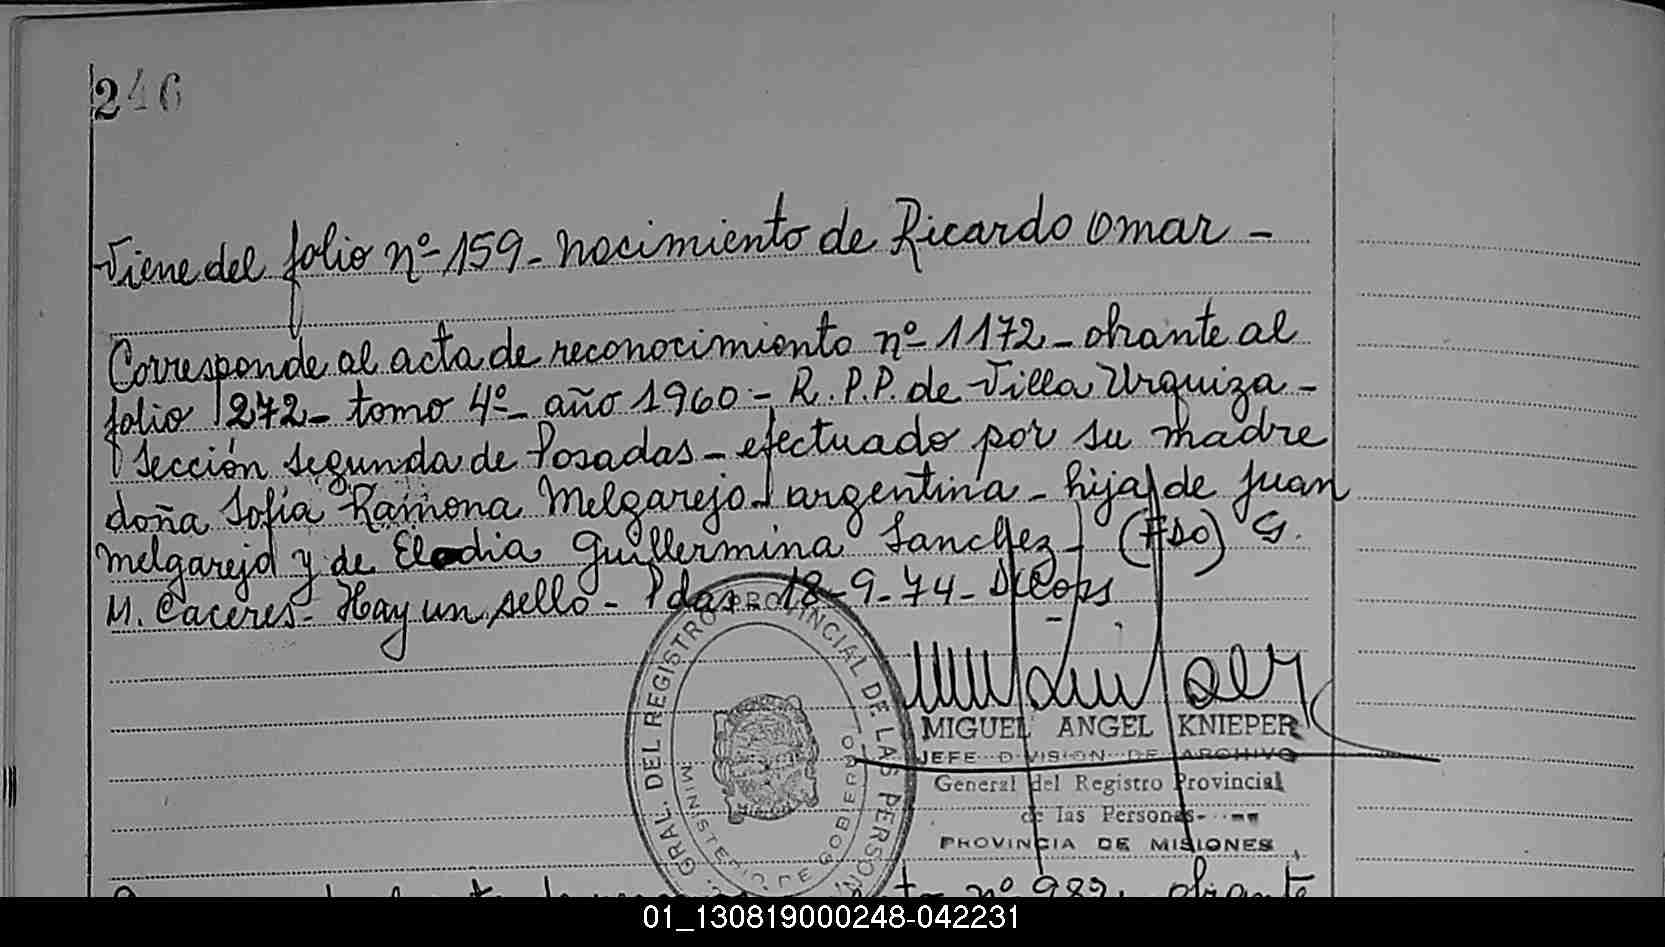 246
Viene del folio nº 159 - nacimiento de Ricardo Omar -
Corresponde al acta de reconocimiento nº 1172 - obrante al
folio 272 - tomo 4º - año 1960 - R.P.P. de Villa Urquiza -
Sección segunda de Posadas - efectuado por su madre
doña Sofía Ramona Melgarejo - argentina - hija de Juan
Melgarejo y de Elodia Guillermina Sanchez - (FDO) G.
M. Caceres - Hay un sello - Pdas 18-9-74 -
GRAL. DEL REGISTRO PROVINCIAL DE LAS PERSON
MINISTERIO DE GOBIERNO
MIGUEL ANGEL KNIEPER
JEFE DIVISION DE ARCHIVO
General del Registro Provincial
de las Personas
PROVINCIA DE MISIONES
nº 982, obrante
01_130819000248-042231